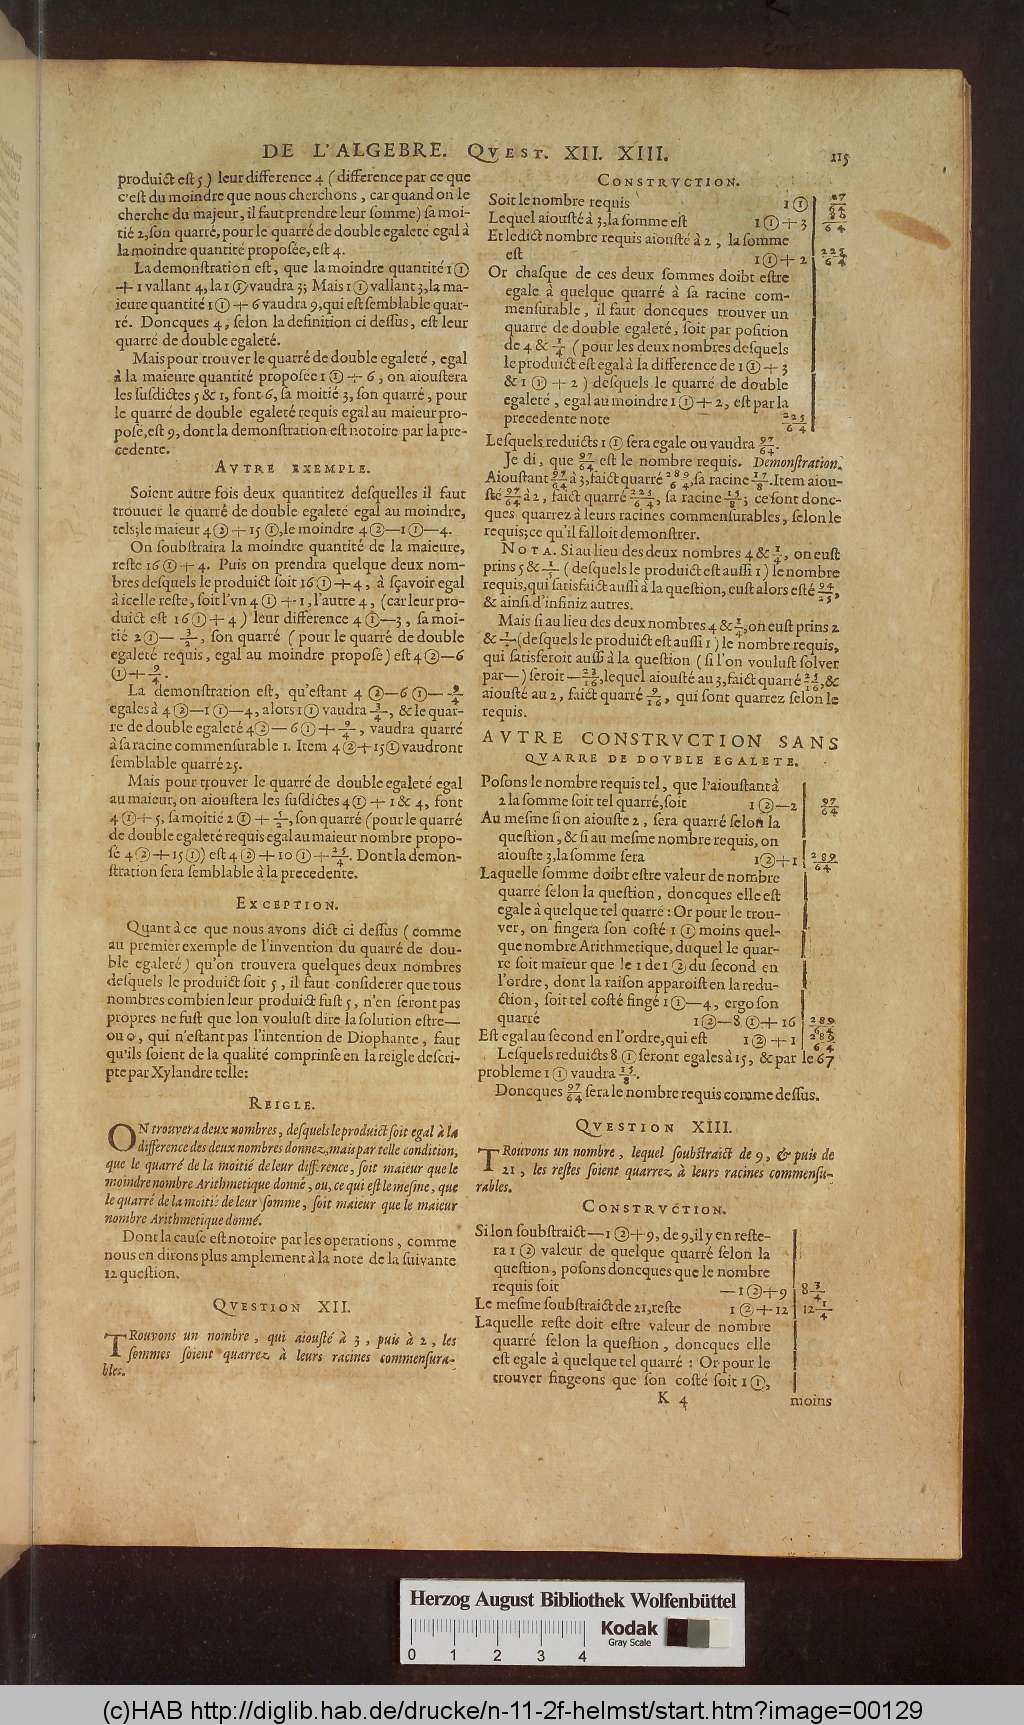 DE L'ALGEBRE. QVEST. XII. XIII. 115
produict est 5) leur difference 4 (difference par ce que
c'est du moindre que nous cherchons, car quand on le
cherche du majeur, il faut prendre leur somme) sa moi-
tié 2, son quarré, pour le quarré de double egaleté egal à
la moindre quantité proposée, est 4.
La demonstration est, que la moindre quantité 1①
+ 1 vallant 4, la 1① vaudra 3; Mais 1① vallant 3, la ma-
ieure quantité 1① + 6 vaudra 9, qui est semblable quar-
ré. Doncques 4, selon la definition ci dessus, est leur
quarré de double egaleté.
Mais pour trouver le quarré de double egaleté, egal
à la maieure quantité proposée 1① + 6, on aioustera
les susdictes 5 & 1, font 6, sa moitié 3, son quarré, pour
le quarré de double egaleté requis egal au maieur pro-
posé, est 9, dont la demonstration est notoire par la pre-
cedente.
AVTRE EXEMPLE.
Soient autre fois deux quantitez desquelles il faut
trouuer le quarré de double egaleté egal au moindre,
tels; le maieur 4② + 15①, le moindre 4②—1①—4.
On soubstraira la moindre quantité de la maieure,
reste 16① + 4. Puis on prendra quelque deux nom-
bres desquels le produict soit 16① + 4, à sçavoir egal
à icelle reste, soit l'vn 4① + 1, l'autre 4, (car leur pro-
duict est 16① + 4) leur difference 4①—3, sa moi-
tié 2①— 3/2, son quarré (pour le quarré de double
egaleté requis, egal au moindre proposé) est 4②—6
① + 9/4.
La demonstration est, qu'estant 4②—6①— 9/4
egales à 4②—1①—4, alors 1① vaudra 3/4, & le quar-
re de double egaleté 4②—6① + 9/4, vaudra quarré
à sa racine commensurable 1. Item 4② + 15① vaudront
semblable quarré 25.
Mais pour trouver le quarré de double egaleté egal
au maieur, on aioustera les susdictes 4① + 1 & 4, font
4① + 5, sa moitié 2① + 5/2, son quarré (pour le quarré
de double egaleté requis egal au maieur nombre propo-
sé 4② + 15①) est 4② + 10① + 25/4. Dont la demon-
stration sera semblable à la precedente.
EXCEPTION.
Quant à ce que nous avons dict ci dessus (comme
au premier exemple de l'invention du quarré de dou-
ble egaleté) qu'on trouvera quelques deux nombres
desquels le produict soit 5, il faut considerer que tous
nombres combien leur produict fust 5, n'en seront pas
propres ne fust que lon voulust dire la solution estre—
ou 0, qui n'estant pas l'intention de Diophante, faut
qu'ils soient de la qualité comprinse en la reigle descri-
pte par Xylandre telle:
REIGLE.
ON trouvera deux nombres, desquels le produict soit egal à la
difference des deux nombres donnez, mais par telle condition,
que le quarré de la moitié de leur difference, soit maieur que le
moindre nombre Arithmetique donné, ou, ce qui est le mesme, que
le quarré de la moitié de leur somme, soit maieur que le maieur
nombre Arithmetique donné.
Dont la cause est notoire par les operations, comme
nous en dirons plus amplement à la note de la suivante
12 question.
QVESTION XII.
TRouvons un nombre, qui aiousté à 3, puis à 2, les
sommes soient quarrez à leurs racines commensura-
bles.
CONSTRVCTION.
Soit le nombre requis 1① 97/64
Lequel aiousté à 3, la somme est 1① + 3
Et le dict nombre requis aiousté à 2, la somme
est 1① + 2 225/64
Or chasque de ces deux sommes doibt estre
egale à quelque quarré à sa racine com-
mensurable, il faut doncques trouver un
quarré de double egaleté, soit par position
de 4 & 1/4 (pour les deux nombres desquels
le produict est egal à la difference de 1① + 3
& 1① + 2) desquels le quarré de double
egaleté, egal au moindre 1① + 2, est par la
precedente note 225/64
Lesquels reduicts 1① sera egale ou vaudra 97/64.
Je di, que 97/64 est le nombre requis. Demonstration.
Aioustant 97/64 à 3, faict quarré 289/64, sa racine 17/8. Item aiou-
sté 97/64 à 2, faict quarré 225/64, sa racine 15/8; ce sont donc-
ques quarrez à leurs racines commensurables, selon le
requis; ce qu'il falloit demonstrer.
NOTA. Si au lieu des deux nombres 4 & 1/4, on eust
prins 5 & 1/5 (desquels le produict est aussi 1) le nombre
requis, qui satisfaict aussi à la question, eust alors esté 94/25,
& ainsi d'infiniz autres.
Mais si au lieu des deux nombres 4 & 1/4, on eust prins 2
& 1/2 (desquels le produict est aussi 1) le nombre requis,
qui satisferoit aussi à la question (si l'on voulust solver
par—) seroit — 23/16, lequel aiousté au 3, faict quarré 25/16, &
aiousté au 2, faict quarré 9/16, qui sont quarrez selon le
requis.
AVTRE CONSTRVCTION SANS
QVARRE DE DOVBLE EGALETE.
Posons le nombre requis tel, que l'aioustant à
2 la somme soit tel quarré, soit 1②—2 97/64
Au mesme si on aiouste 2, sera quarré selon la
question, & si au mesme nombre requis, on
aiouste 3, la somme sera 1② + 1 289/64
Laquelle somme doibt estre valeur de nombre
quarré selon la question, doncques elle est
egale à quelque tel quarré: Or pour le trou-
ver, on fingera son costé 1① moins quel-
que nombre Arithmetique, duquel le quar-
re soit maieur que le 1 de 1② du second en
l'ordre, dont la raison apparoist en la redu-
ction, soit tel costé fingé 1①—4, ergo son
quarré 1②—8① + 16 289/64
Est egal au second en l'ordre, qui est 1② + 1 289/64
Lesquels reduicts 8① seront egales à 15, & par le 67
probleme 1① vaudra 15/8.
Doncques 97/64 sera le nombre requis comme dessus.
QVESTION XIII.
TRouvons un nombre, lequel soubstraict de 9, & puis de
21, les restes soient quarrez à leurs racines commensu-
rables.
CONSTRVCTION.
Si lon soubstraict—1② + 9, de 9, il y en reste-
ra 1② valeur de quelque quarré selon la
question, posons doncques que le nombre
requis soit —1② + 9 8 3/4
Le mesme soubstraict de 21, reste 1② + 12 12 1/4
Laquelle reste doit estre valeur de nombre
quarré selon la question, doncques elle
est egale à quelque tel quarré: Or pour le
trouver fingeons que son costé soit 1①,
K 4 moins
Herzog August Bibliothek Wolfenbüttel
Kodak
Gray Scale
0 1 2 3 4
(c)HAB http://diglib.hab.de/drucke/n-11-2f-helmst/start.htm?image=00129